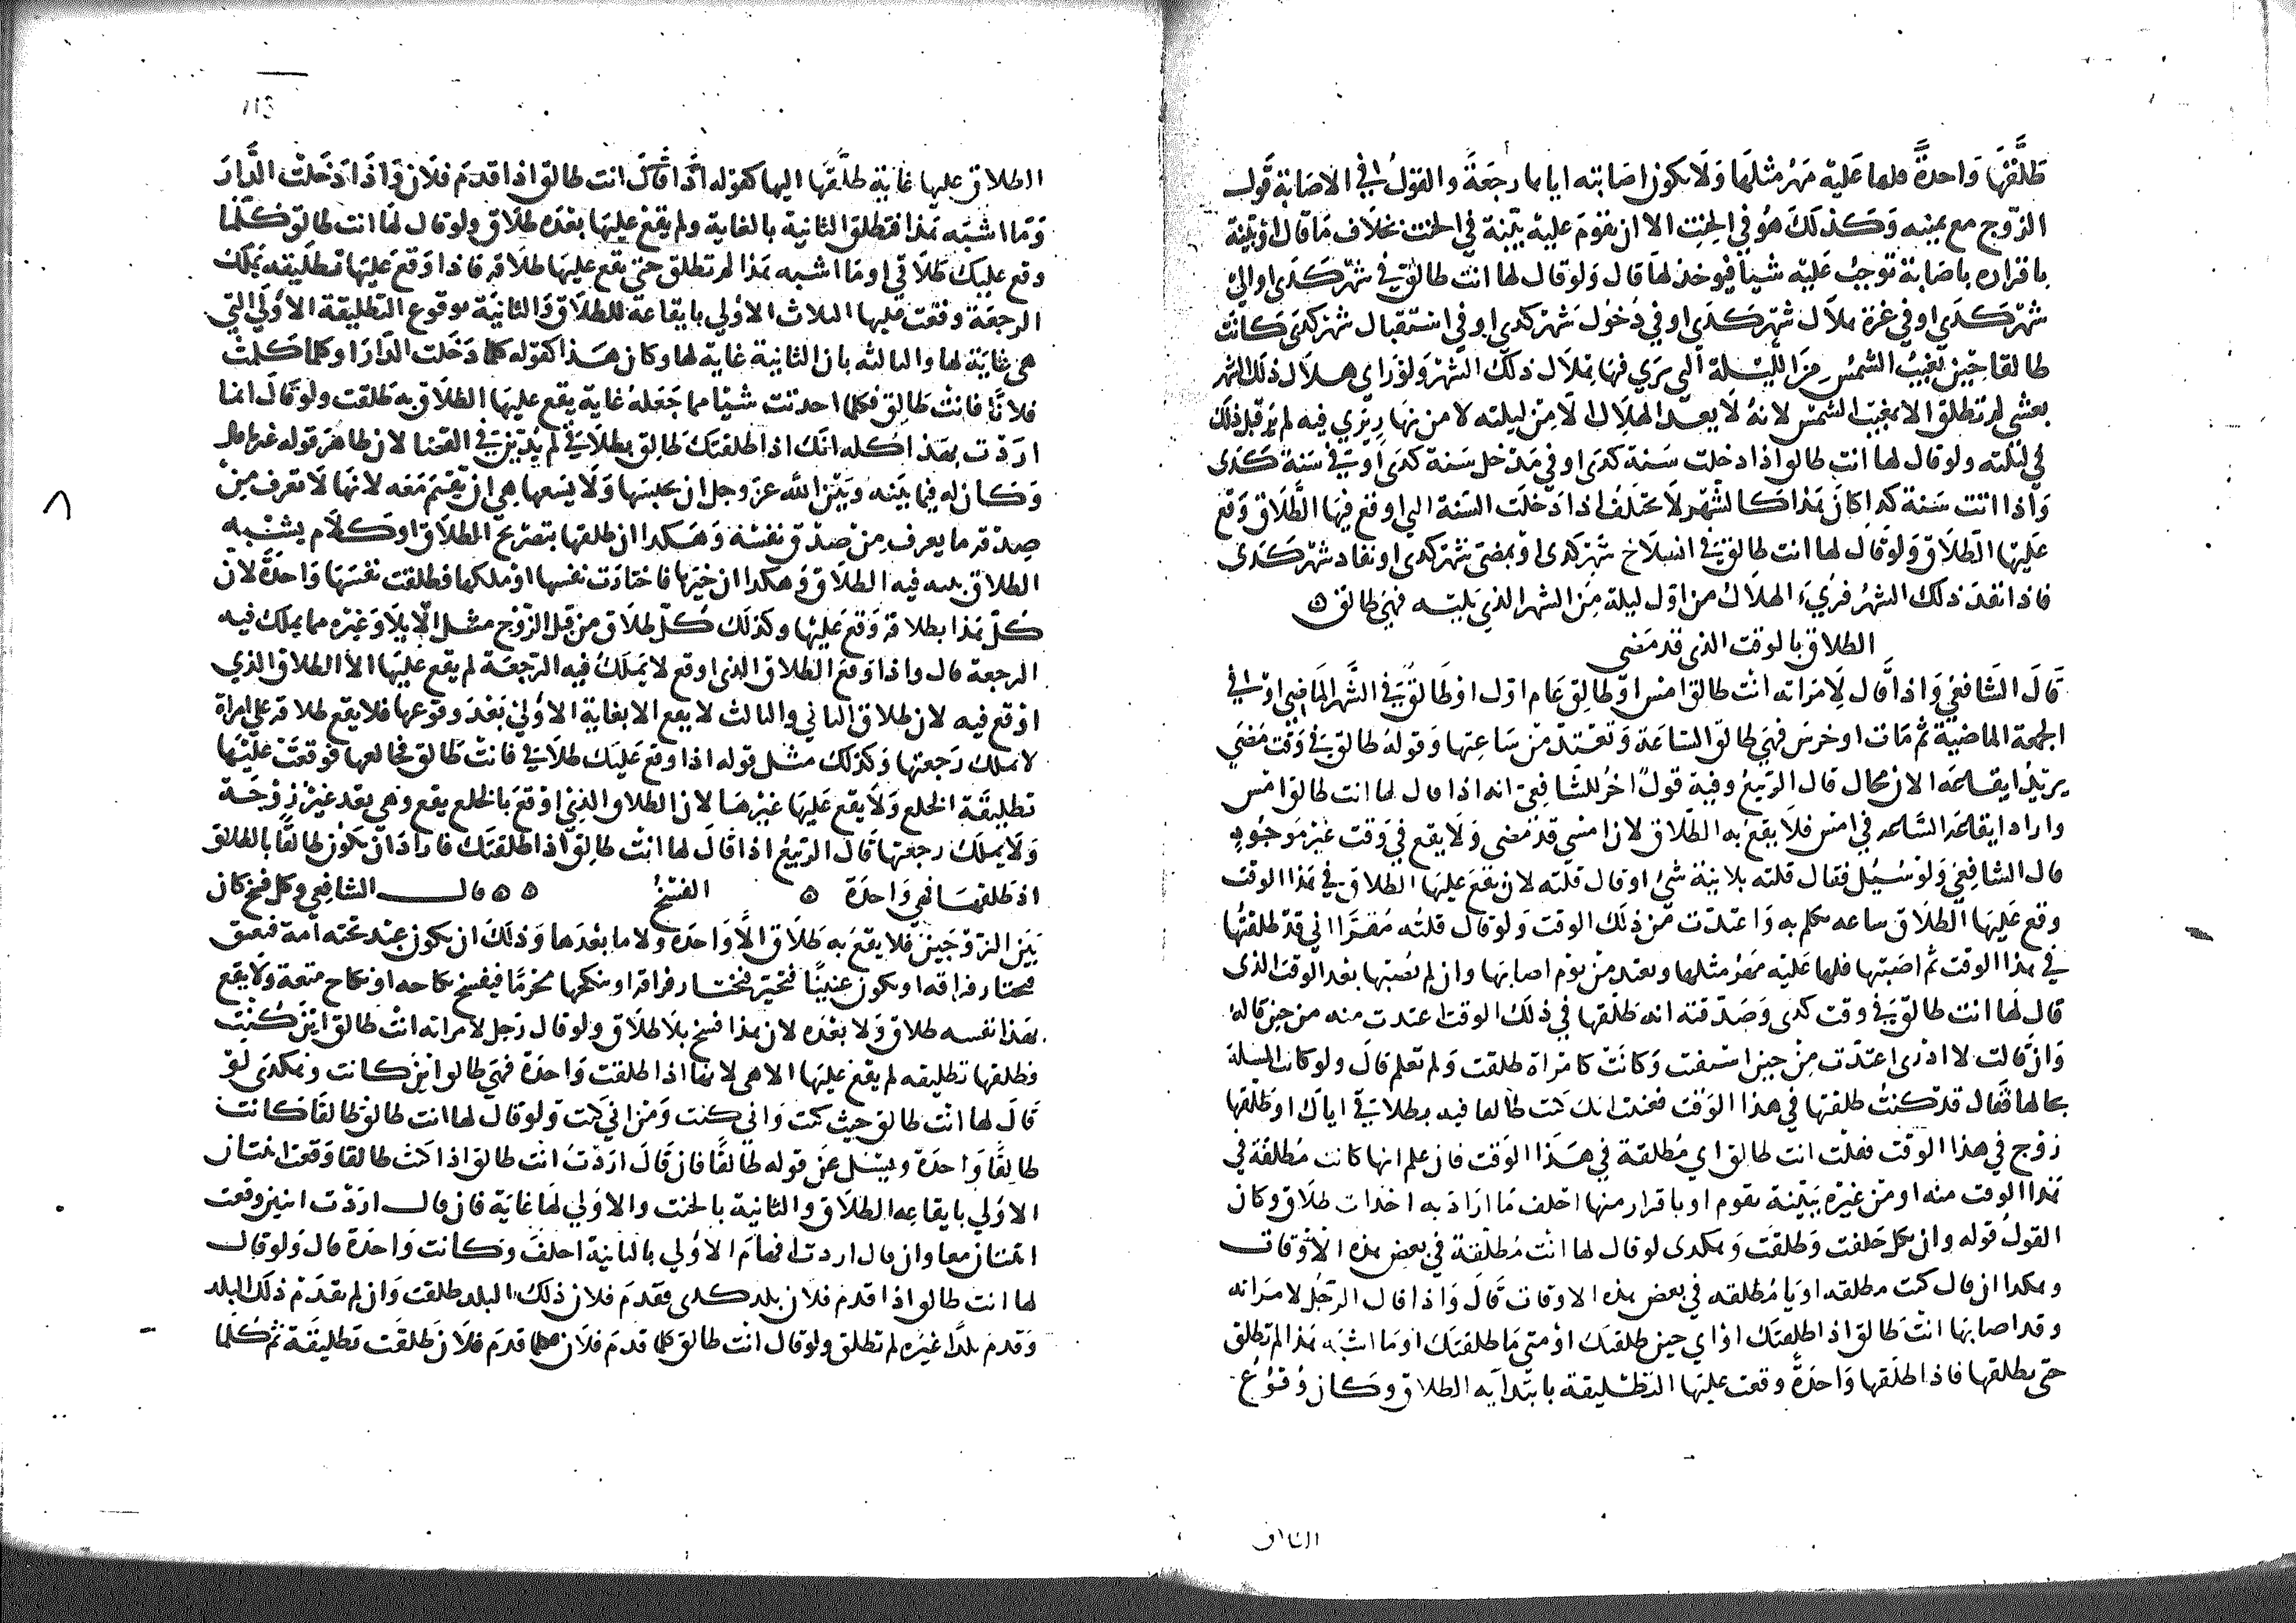 طلقها واحدة فلها عليه مهر مثلها ولا يكون اصابته اياها رجعة والقول في الاصابة قول
الزوج مع يمينه وكذلك هو في الحنث الا ان تقوم عليه بينة في الحنث بخلاف ما قال او بينة
باقراره باصابة توجب عليه شيا فيوخذ لها قال ولو قال لها انت طالق في شهر كدى او الى
شهر كدى او في غرة هلال شهر كدى او في دخول شهر كدى او في استقبال شهر كدى كانت
طالقا حين تغيب الشمس من الليلة التي يرى فيها هلال ذلك الشهر ولو راى هلال ذلك الشهر
بعشي لم تطلق الا بمغيب الشمس لانه لا يعد الهلال الا من ليلته لا من نهار يرى فيه لم ير قبل ذلك
في ليلته ولو قال لها انت طالق اذا دخلت سنة كدى او في مدخل سنة كدى او في سنة كدى
واذا اتت سنة كدا كان هذا كالشهر لا يختلف اذا دخلت السنة التي اوقع فيها الطلاق وقع
عليها الطلاق ولو قال لها انت طالق في انسلاخ شهر كدى او بمضي شهر كدى او نفاد شهر كدى
فاذا نفد ذلك الشهر فرىء الهلال من اول ليلة من الشهر الذي يليه فهي طالق ه
الطلاق بالوقت الذي قد مضى
قال الشافعي واذا قال لامراته انت طالق امس او طالق عام اول او طالق في الشهر الماضي او في
الجمعة الماضية ثم مات او خرس فهي طالق الساعة وتعتد من ساعتها وقوله طالق في وقت مضى
يريد ايقاعه الان محال قال الربيع وفيه قول اخر للشافعي انه اذا قال لها انت طالق امس
واراد ايقاعه الساعه في امس فلا يقع به الطلاق لان امس قد مضى ولا يقع في وقت غير موجود
قال الشافعي ولو سيل فقال قلته بلا نية شئ او قال قلته لان يقع عليها الطلاق في هذا الوقت
وقع عليها الطلاق ساعه تكلم به واعتدت من ذلك الوقت ولو قال قلته مقرا اني قد طلقتها
في هذا الوقت ثم اصبتها فلها عليه مهر مثلها وتعتد من يوم اصابها وان لم يصبها بعد الوقت الذي
قال لها انت طالق في وقت كدى وصدقته انه طلقها في ذلك الوقت اعتدت منه من حين قاله
وان قالت لا ادري اعتدت من حين استيقنت وكانت كامراة طلقت ولم تعلم قال ولو كانت المسلة
بحالها فقال قد كنت طلقتها في هذا الوقت فعنيت انك كنت طالقا فيه بطلاقي اياك او طلقها
زوج في هذا الوقت فقلت انت طالق اي مطلقة في هذا الوقت فان علم انها كانت مطلقة في
هذا الوقت منه او من غيره ببينة تقوم او باقرار منها احلف ما اراد به احداث طلاق وكان
القول قوله وان نكل حلفت وطلقت وهكدى لو قال لها انت مطلقة في بعض هذه الاوقات
وهكدا ان قال كنت مطلقه او يا مطلقه في بعض هذه الاوقات قال واذا قال الرجل لامراته
وقد اصابها انت طالق اذا طلقتك او اي حين طلقتك او متى ما طلقتك او ما اشبه هذا لم تطلق
حتى يطلقها فاذا طلقها واحدة وقعت عليها التطليقة بابتدايه الطلاق وكان وقوع
الطلاق عليها غاية طلقها اليها كقوله اذا قال انت طالق اذا قدم فلان واذا دخلت الدار
وما اشبه هذا فتطلق الثانية بالغاية ولم يقع عليها بعده طلاق ولو قال لها انت طالق كلما
وقع عليك طلاقي او ما اشبه هذا لم تطلق حتى يقع عليها طلاقه فاذا وقع عليها تطليقه يملك
الرجعة وقعت عليها الثلاث الاولى بايقاعه للطلاق والثانية بوقوع التطليقة الاولى التي
هي غاية لها والثالثه بان الثانية غاية لها وكان هذا كقوله كلما دخلت الدار او كلما كلمت
فلانا فانت طالق فكلما احدثت شيا مما جعله غاية يقع عليها الطلاق به طلقت ولو قال انما
اردت بهذا كله انك اذا طلقتك طالق بطلاقي لم يدين في القضا لان ظاهر قوله غير
وكان له فيما بينه وبين الله عز وجل ان يحبسها ولا يسعها هي ان تقيم معه لانها لا تعرف من
صدقه ما يعرف من صدق نفسه وهكدا ان طلقها بتصريح الطلاق او كلام يشبه
الطلاق نيته فيه الطلاق وهكدا ان خيرها فاختارت نفسها او ملكها فطلقت نفسها واحدة لان
كل هذا بطلاقه وقع عليها وكذلك كل طلاق من قبل الزوج مثل الايلا وغيره مما يملك فيه
الرجعة قال واذا وقع الطلاق الذي اوقع لا يملك فيه الرجعة لم يقع عليها الا الطلاق الذي
اوقع فيه لان طلاق الثاني والثالث لا يقع الا بغاية الاولى بعد وقوعها فلا يقع طلاقه على امراة
لا يملك رجعتها وكذلك مثل قوله اذا وقع عليك طلاقي فانت طالق فخالعها فوقعت عليها
تطليقة الخلع ولا يقع عليها غيرها لان الطلاق الذي اوقع بالخلع يقع وهي بعد غير زوجة
ولا يملك رجعتها قال الربيع اذا قال لها انت طالق اذا طلقتك فاراد ان تكون طالقا بالطلاق
اذ طلقها فهي واحدة ه الفسخ ه ه قال الشافعي وكل فسخ كان
بين الزوجين فلا يقع به طلاق الا واحدة ولا ما بعدها وذلك ان يكون عبد تحته امة فتعتق
فتختار فراقه او يكون عنينا فتخير فتختار فراقه او ينكحها محرما فيفسخ نكاحه او نكاح متعة ولا يقع
بهذا نفسه طلاق ولا بعده لان هذا فسخ بلا طلاق ولو قال رجل لامراته انت طالق اين كنت
فطلقها تطليقه لم يقع عليها الا هي لانها اذا طلقت واحدة فهي طالق اين كانت وهكدى لو
قال لها انت طالق حيث كنت وانى كنت ومن اني كنت ولو قال لها انت طالق طالقا كانت
طالقا واحدة ويسل عن قوله طالقا فان قال اردت انت طالق اذا كنت طالقا وقعت اثنتان
الاولى بايقاعه الطلاق والثانية بالحنث والاولى لها غاية فان قال اردت اثنين وقعت
اثنتان معا وان قال اردت افهام الاولى بالثانية احلف وكانت واحدة قال ولو قال
لها انت طالق اذا قدم فلان بلد كدى فقدم فلان ذلك البلد طلقت وان لم يقدم ذلك البلد
وقدم بلدا غيره لم تطلق ولو قال انت طالق كلما قدم فلان فكلما قدم فلان طلقت تطليقة ثم كلما